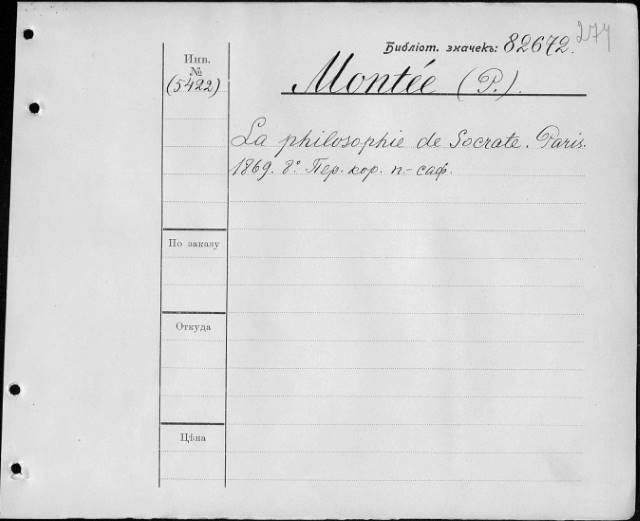 274
Библіот. значекъ: 82672.
Инв.
№
(5422)
Montée (P.).
La philosophie de Socrate. Paris.
1869. 8° Пер. кор. п.-саф.
По заказу
Откуда
Цѣна